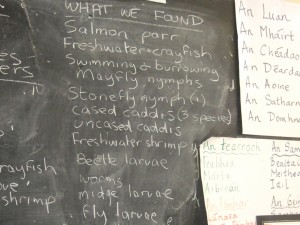 WHAT WE FOUND
Salmon parr
Freshwater crayfish
Swimming & burrowing
Mayfly nymphs
Stonefly nymph (1)
cased caddis (3 species)
uncased caddis
Freshwater shrimp
Beetle larvae
worms
midge larvae
fly larvae
crayfish
An Luan
An Mháirt
An Chéadao
An Déardao
An Aoine
An Satharn
An Domhna
An tearrach
Feabhra
Márta
Aibreán
An Sam
Bealtai
Meithea
Iúil